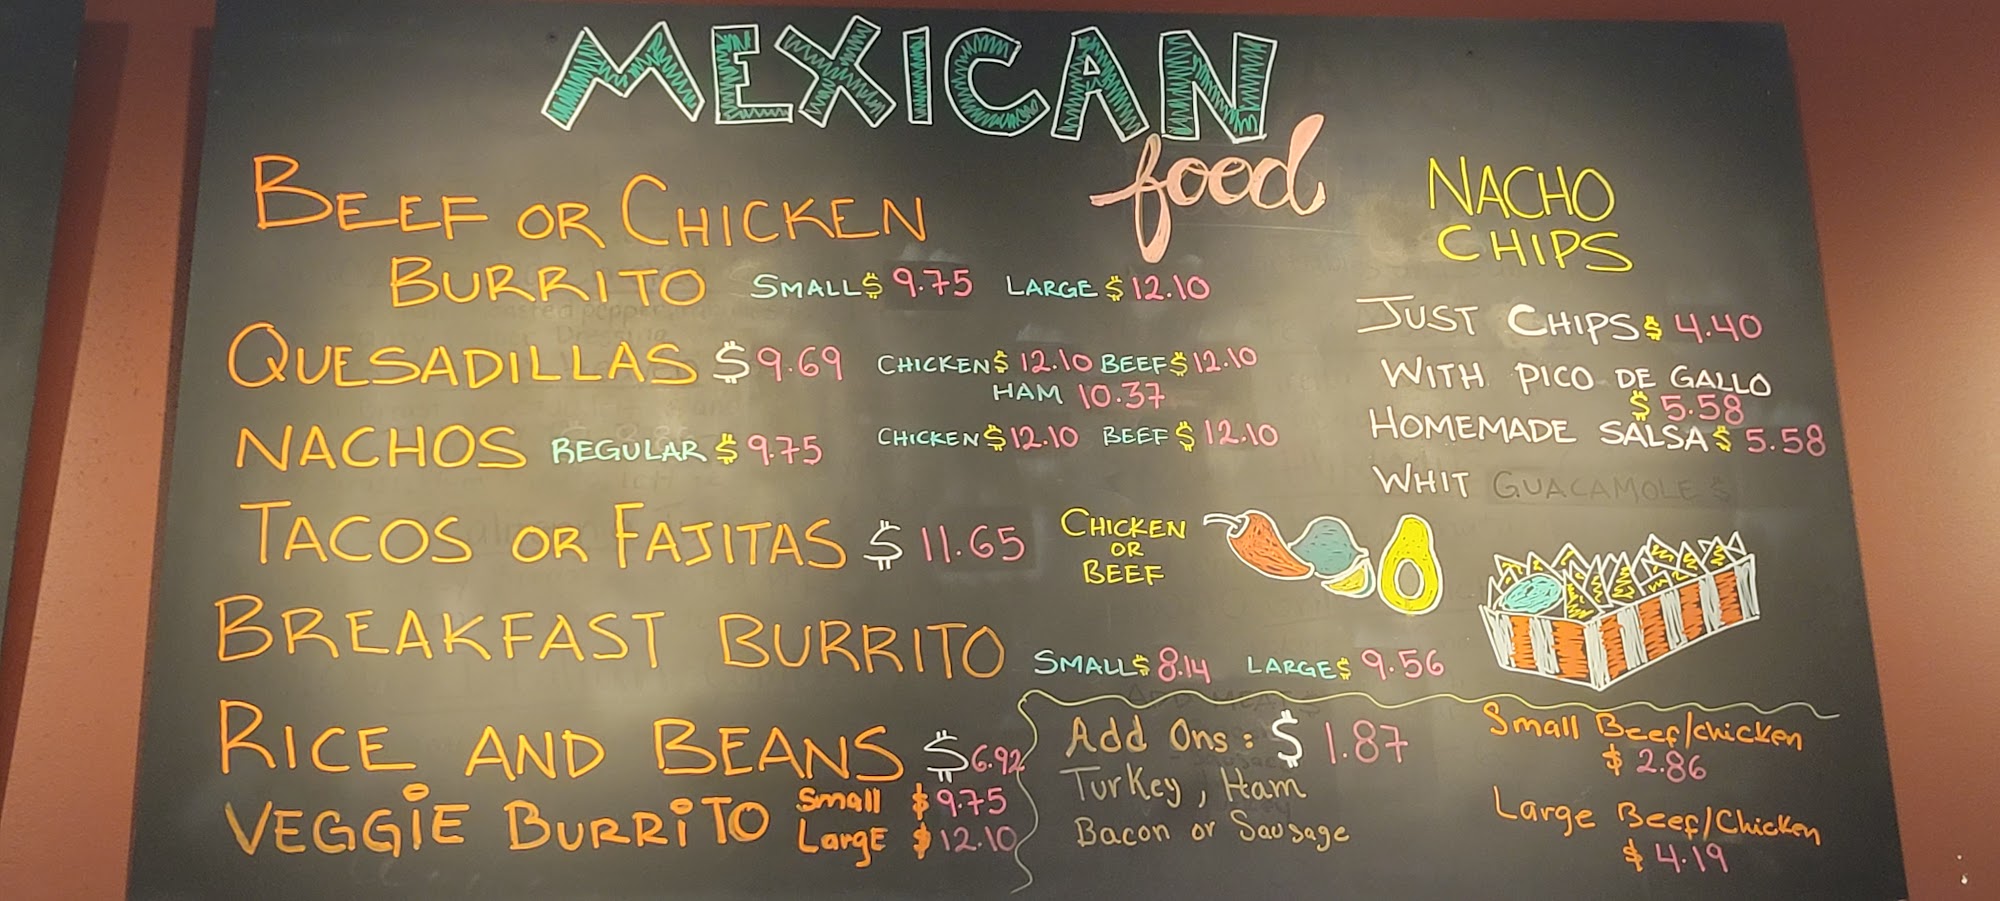 MEXICAN
food
BEEF OR CHICKEN
BURRITO SMALL $ 9.75 LARGE $ 12.10
QUESADILLAS $ 9.69 CHICKEN $ 12.10 BEEF $ 12.10
HAM 10.37
NACHOS REGULAR $ 9.75 CHICKEN $ 12.10 BEEF $ 12.10
TACOS OR FAJITAS $ 11.65 CHICKEN
OR
BEEF
BREAKFAST BURRITO SMALL $ 8.14 LARGE $ 9.56
RICE AND BEANS $ 6.92
VEGGIE BURRITO Small $ 9.75
Large $ 12.10
NACHO
CHIPS
JUST CHIPS $ 4.40
WITH PICO DE GALLO
$ 5.58
HOMEMADE SALSA $ 5.58
WHIT GUACAMOLE $
Add Ons: $ 1.87
Turkey, Ham
Bacon or Sausage
Small Beef/chicken
$ 2.86
Large Beef/Chicken
$ 4.19